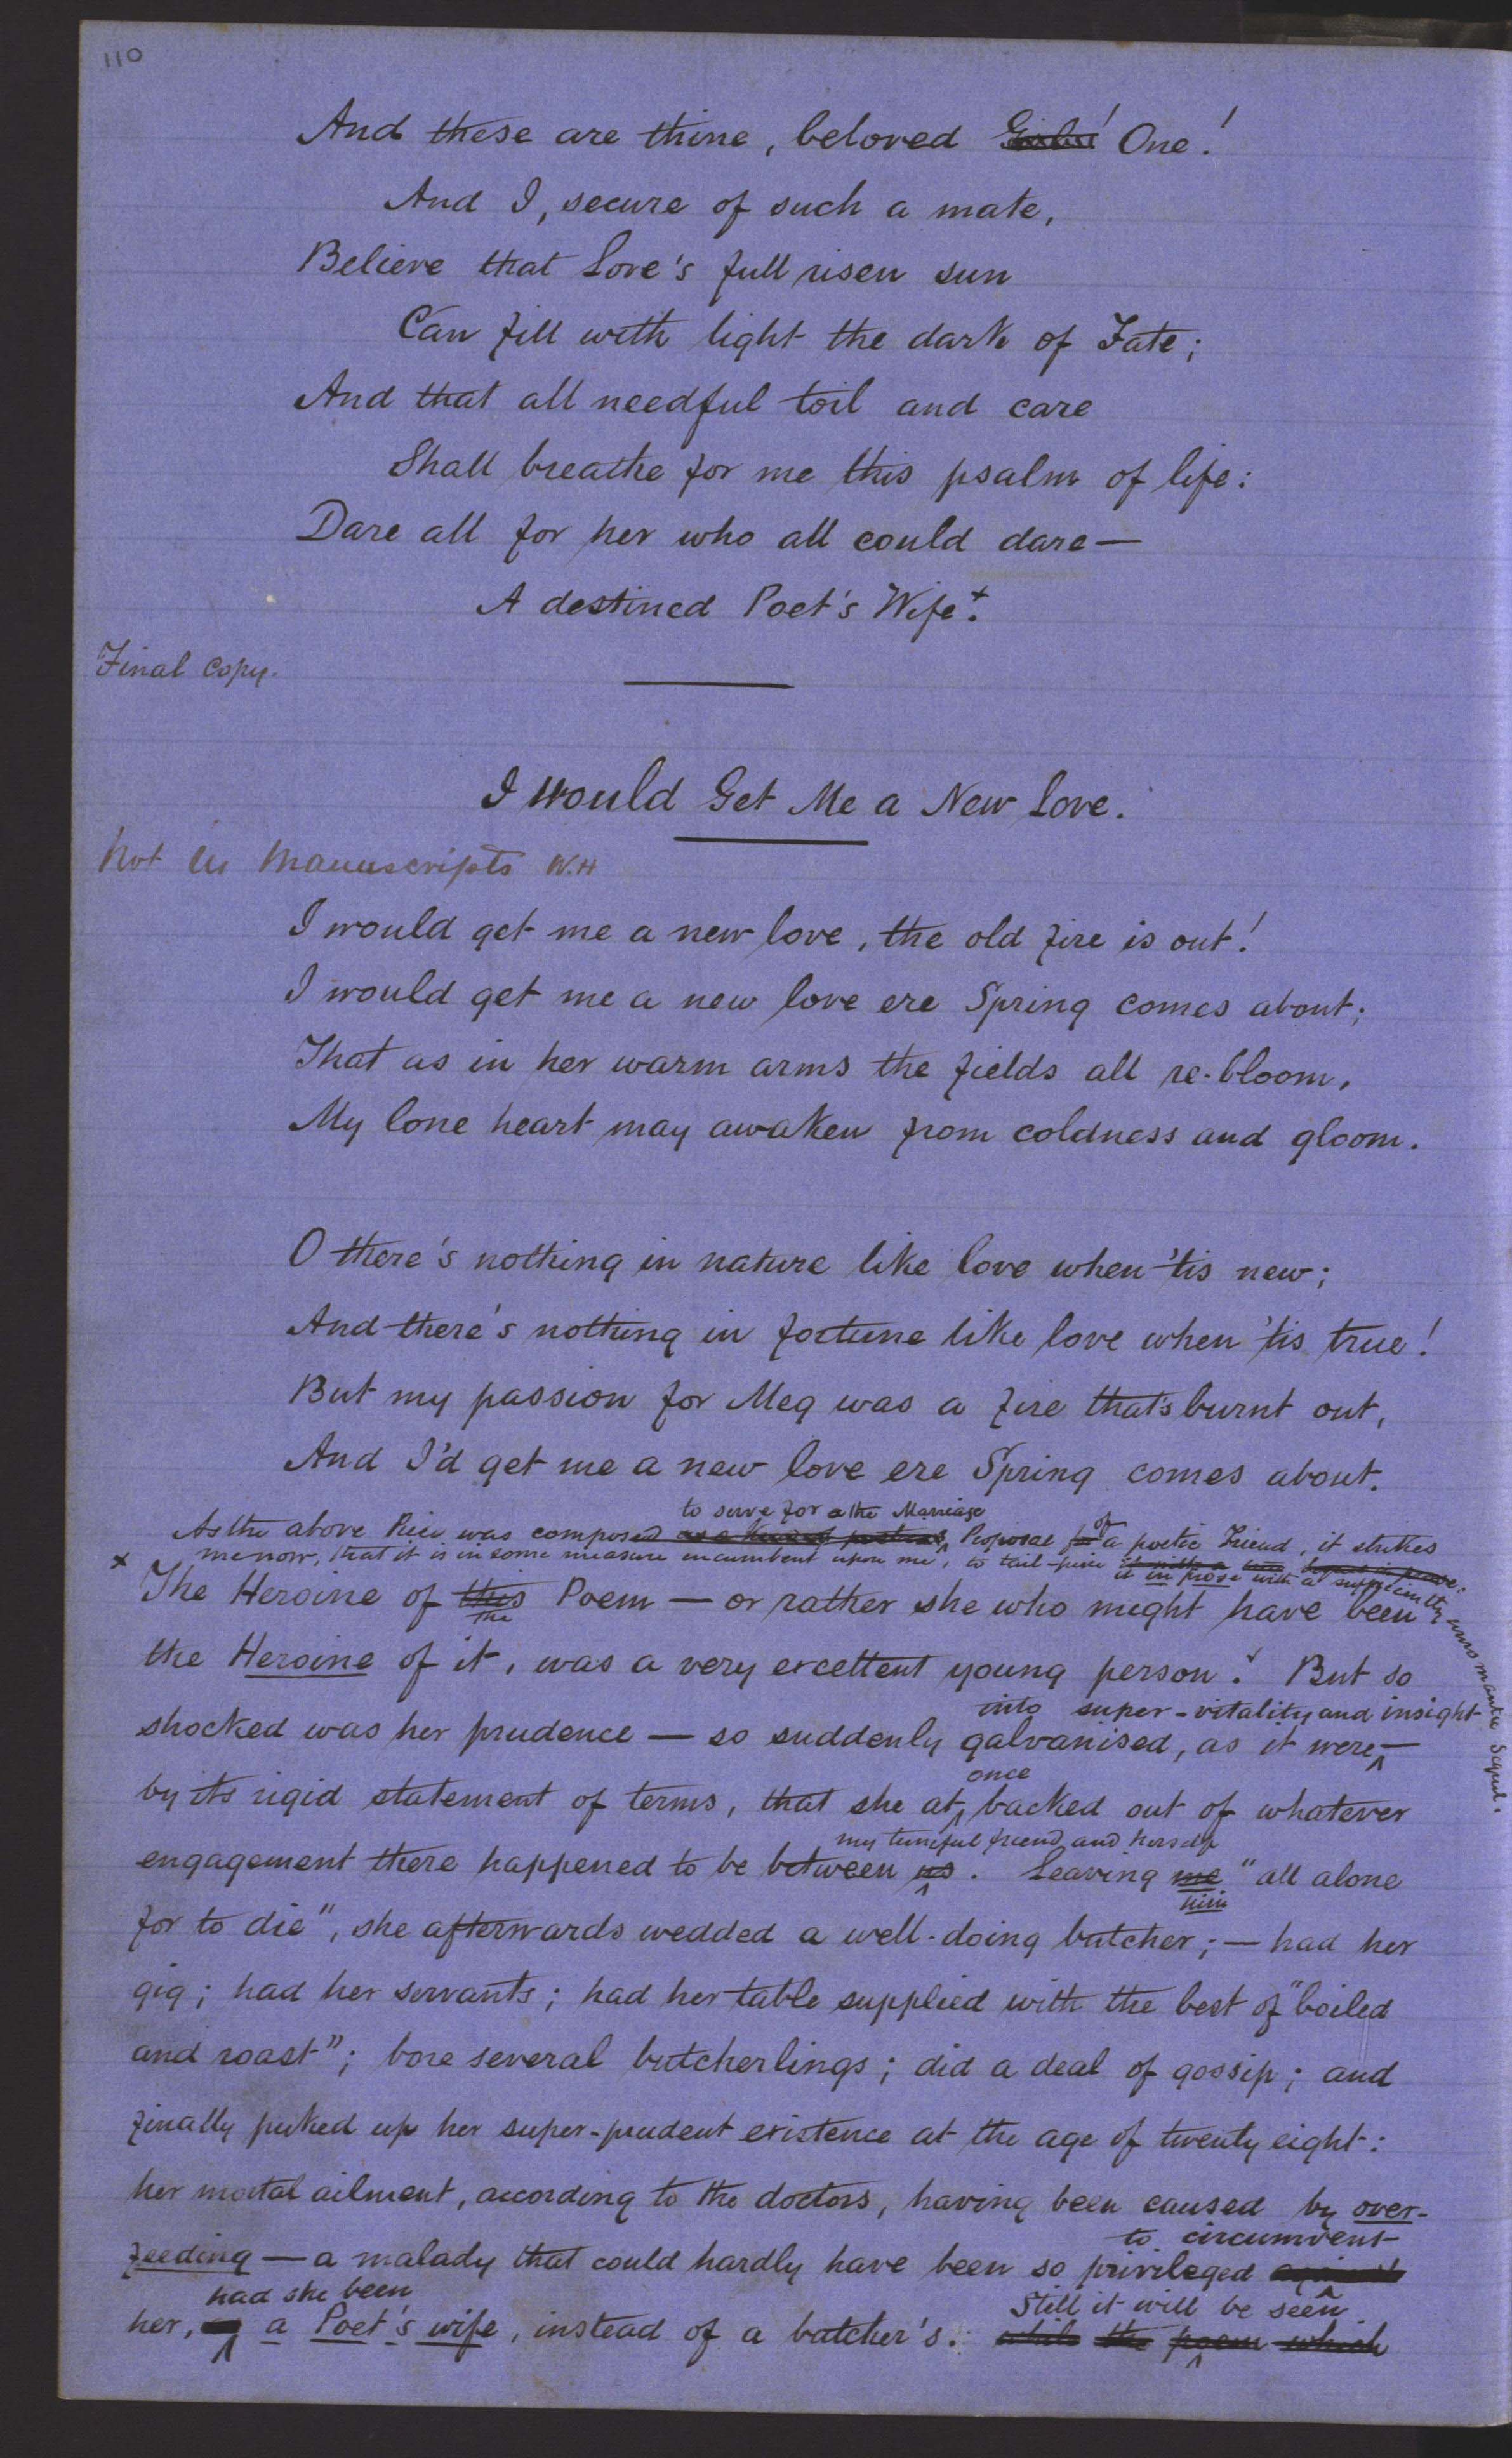 110
And these are thine, beloved One!
And I, secure of such a mate,
Believe that Love's full risen sun
Can fill with light the dark of Fate;
And that all needful toil and care
Shall breathe for me this psalm of life:
Dare all for her who all could dare—
A destined Poet's Wife.+
Final Copy.
I Would Get Me a New Love.
Not in Manuscripts W.H
I would get me a new love, the old fire is out!
I would get me a new love ere Spring comes about;
That as in her warm arms the fields all re-bloom,
My lone heart may awaken from coldness and gloom.
O there's nothing in nature like love when 'tis new;
And there's nothing in fortune like love when 'tis true!
But my passion for Meg was a fire that's burnt out,
And I'd get me a new love ere Spring comes about.
to serve for a the Marriage
of
As the above Piece was composed as a kind of Proposal for a poetic Friend, it strikes
me now, that it is in some measure incumbent upon me, to tail-piece
it in prose with a sufficiently unromantic Sequel.
x The Heroine of this Poem — or rather she who might have been
the
the Heroine of it, was a very excellent young person. But so
into super-vitality and insight
shocked was her prudence — so suddenly galvanised, as it were—
once
by its rigid statement of terms, that she at backed out of whatever
my tuneful friend and herself
engagement there happened to be between us. Leaving me "all alone
him
for to die", she afterwards wedded a well-doing butcher; — had her
gig; had her servants; had her table supplied with the best of "boiled
and roast"; bore several butcherlings; did a deal of gossip; and
finally puked up her super-prudent existence at the age of twenty eight:
her mortal ailment, according to the doctors, having been caused by over-
to circumvent
feeding — a malady that could hardly have been so privileged against
had she been
Still it will be seen
her, as a Poet's wife, instead of a butcher's. while the poem which